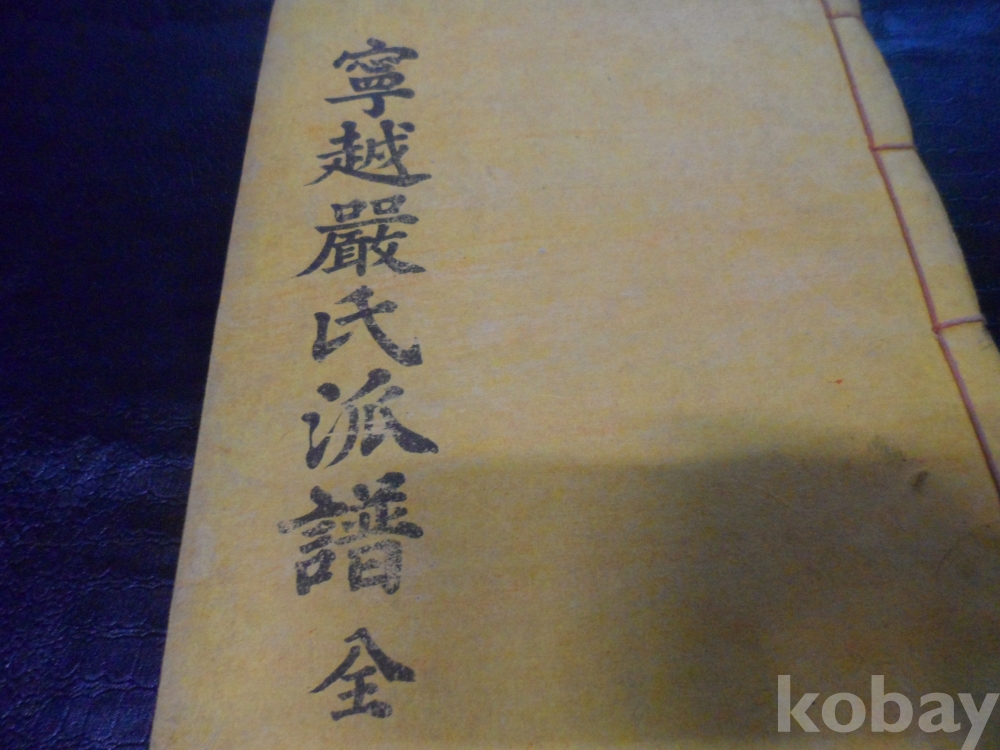 寧越嚴氏派譜 全
kobay